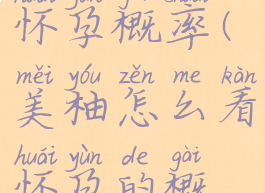 怀孕概率(
měi yóu zěn me kàn
美柚怎么看
huái yùn de gài
怀孕的概